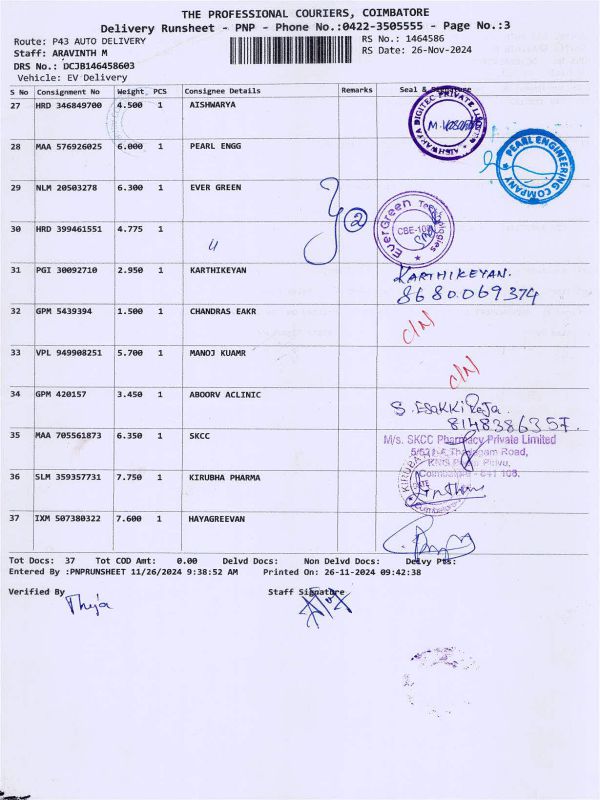 THE PROFESSIONAL COURIERS, COIMBATORE
Delivery Runsheet - PNP - Phone No.:0422-3505555 - Page No.:3
Route: P43 AUTO DELIVERY RS No.: 1464586
Staff: ARAVINTH M RS Date: 26-Nov-2024
DRS No.: DCJB146458603
Vehicle: EV Delivery
S No Consignment No Weight PCS Consignee Details Remarks Seal & Signature
27 HRD 346849700 4.500 1 AISHWARYA
AISHWARYA DIGITEC PRIVATE
28 MAA 576926025 6.000 1 PEARL ENGG
PEARL ENGINEERING COMPANY
29 NLM 20503278 6.300 1 EVER GREEN
2
EverGreen Technologies
30 HRD 399461551 4.775 1 〃
31 PGI 30092710 2.950 1 KARTHIKEYAN KARTHIKEYAN.
8680069374
32 GPM 5439394 1.500 1 CHANDRAS EAKR C/N
33 VPL 949908251 5.700 1 MANOJ KUAMR C/N
34 GPM 420157 3.450 1 ABOORV ACLINIC S. Esakki Raja.
8148386357.
35 MAA 705561873 6.350 1 SKCC M/s. SKCC Pharmacy Private Limited
Road,
Coimbatore - 641 108.
36 SLM 359357731 7.750 1 KIRUBHA PHARMA
37 IXM 507380322 7.600 1 HAYAGREEVAN
Tot Docs: 37 Tot COD Amt: 0.00 Delvd Docs: Non Delvd Docs: Delvy Pts:
Entered By :PNPRUNSHEET 11/26/2024 9:38:52 AM Printed On: 26-11-2024 09:42:38
Verified By Staff Signature